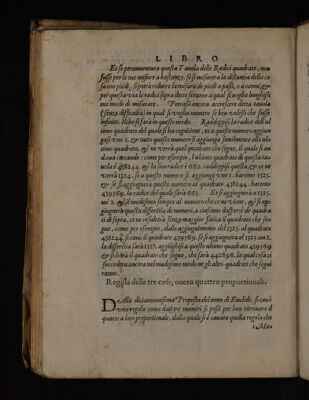 LIBRO
Et se per auuentura questa Tauola delle Radici quadrate, non
fusse per le tue misure a bastanza, se si misurera la distantia della co
sa con piedi, si potrà ridurre la misura de piedi a passi, o a canne, &
per questa via le radici sopra dette seruono a qual si voglia lunghissi
mo modo di misurare. Potrassi ancora accrescere detta tauola
(senza difficultà) in qual si voglia numero se ben volessi che fusse
infinito. Ilche si farà in questo modo. Raddoppisi la radice dell ul
timo quadrato del quale si ha cognitione, et a questo numero aggiun
gasi vno 1. & tutto questo numero si aggiunga similmente allo vl-
timo quadrato, & ne verrà quel quadrato che segue, il quale si an
daua cercando: come per esempio, l'ultimo quadrato di questa ta-
uola è 438244. & la sua radice è 662. raddoppisi questa, & ce ne
verrà 1324. se a questo numero si aggiunge vno 1. haremo 1325.
& se si aggiugnerà questo numero al quadrato 438244. haremo
439569. la radice del quale sarà 663. Et si aggiugneremo a 1325.
vni 2. & il medesimo sempre al numero che ce ne viene, & si ag-
giugnerà questa differentia di numeri, a ciascuno da sesti de quadra
ti di sopra, ce ne resulterà senza maggior fatica il quadrato che se-
gue, come per esempio, dallo aggiugnimento del 1325. al quadrato
438244. si causò il quadrato 439569. se si aggiugnerà al 1325. un 2.
la differentia sarà 1327. aggiunghisi a questo ultimo quadrato 439569
& si harà il quadrato che segue, che sarà 440896. la qual cosa ci
succederà ancora nel medesimo modo ne gli altri quadrati che segui
ranno.
Regola delle tre cose, ouero quattro proportionali.
Dalla dicianouesima Proposta del settimo di Euclide, si cauò
vna regola come dati tre numeri si possi per loro ritrouare il
quarto a loro proportionale, dalla quale si è cauata quella regola che